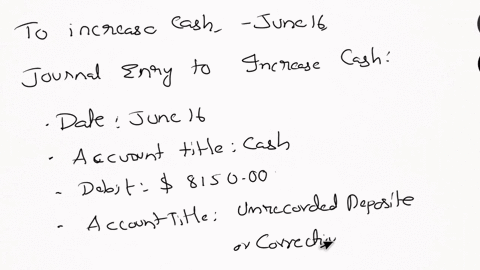 To increase Cash - June 16
Journal Entry to Increase Cash:
· Date: June 16
- Account title: Cash
- Debit: $ 8150.00
- Account Title: Unrecorded Deposite
or Correctio